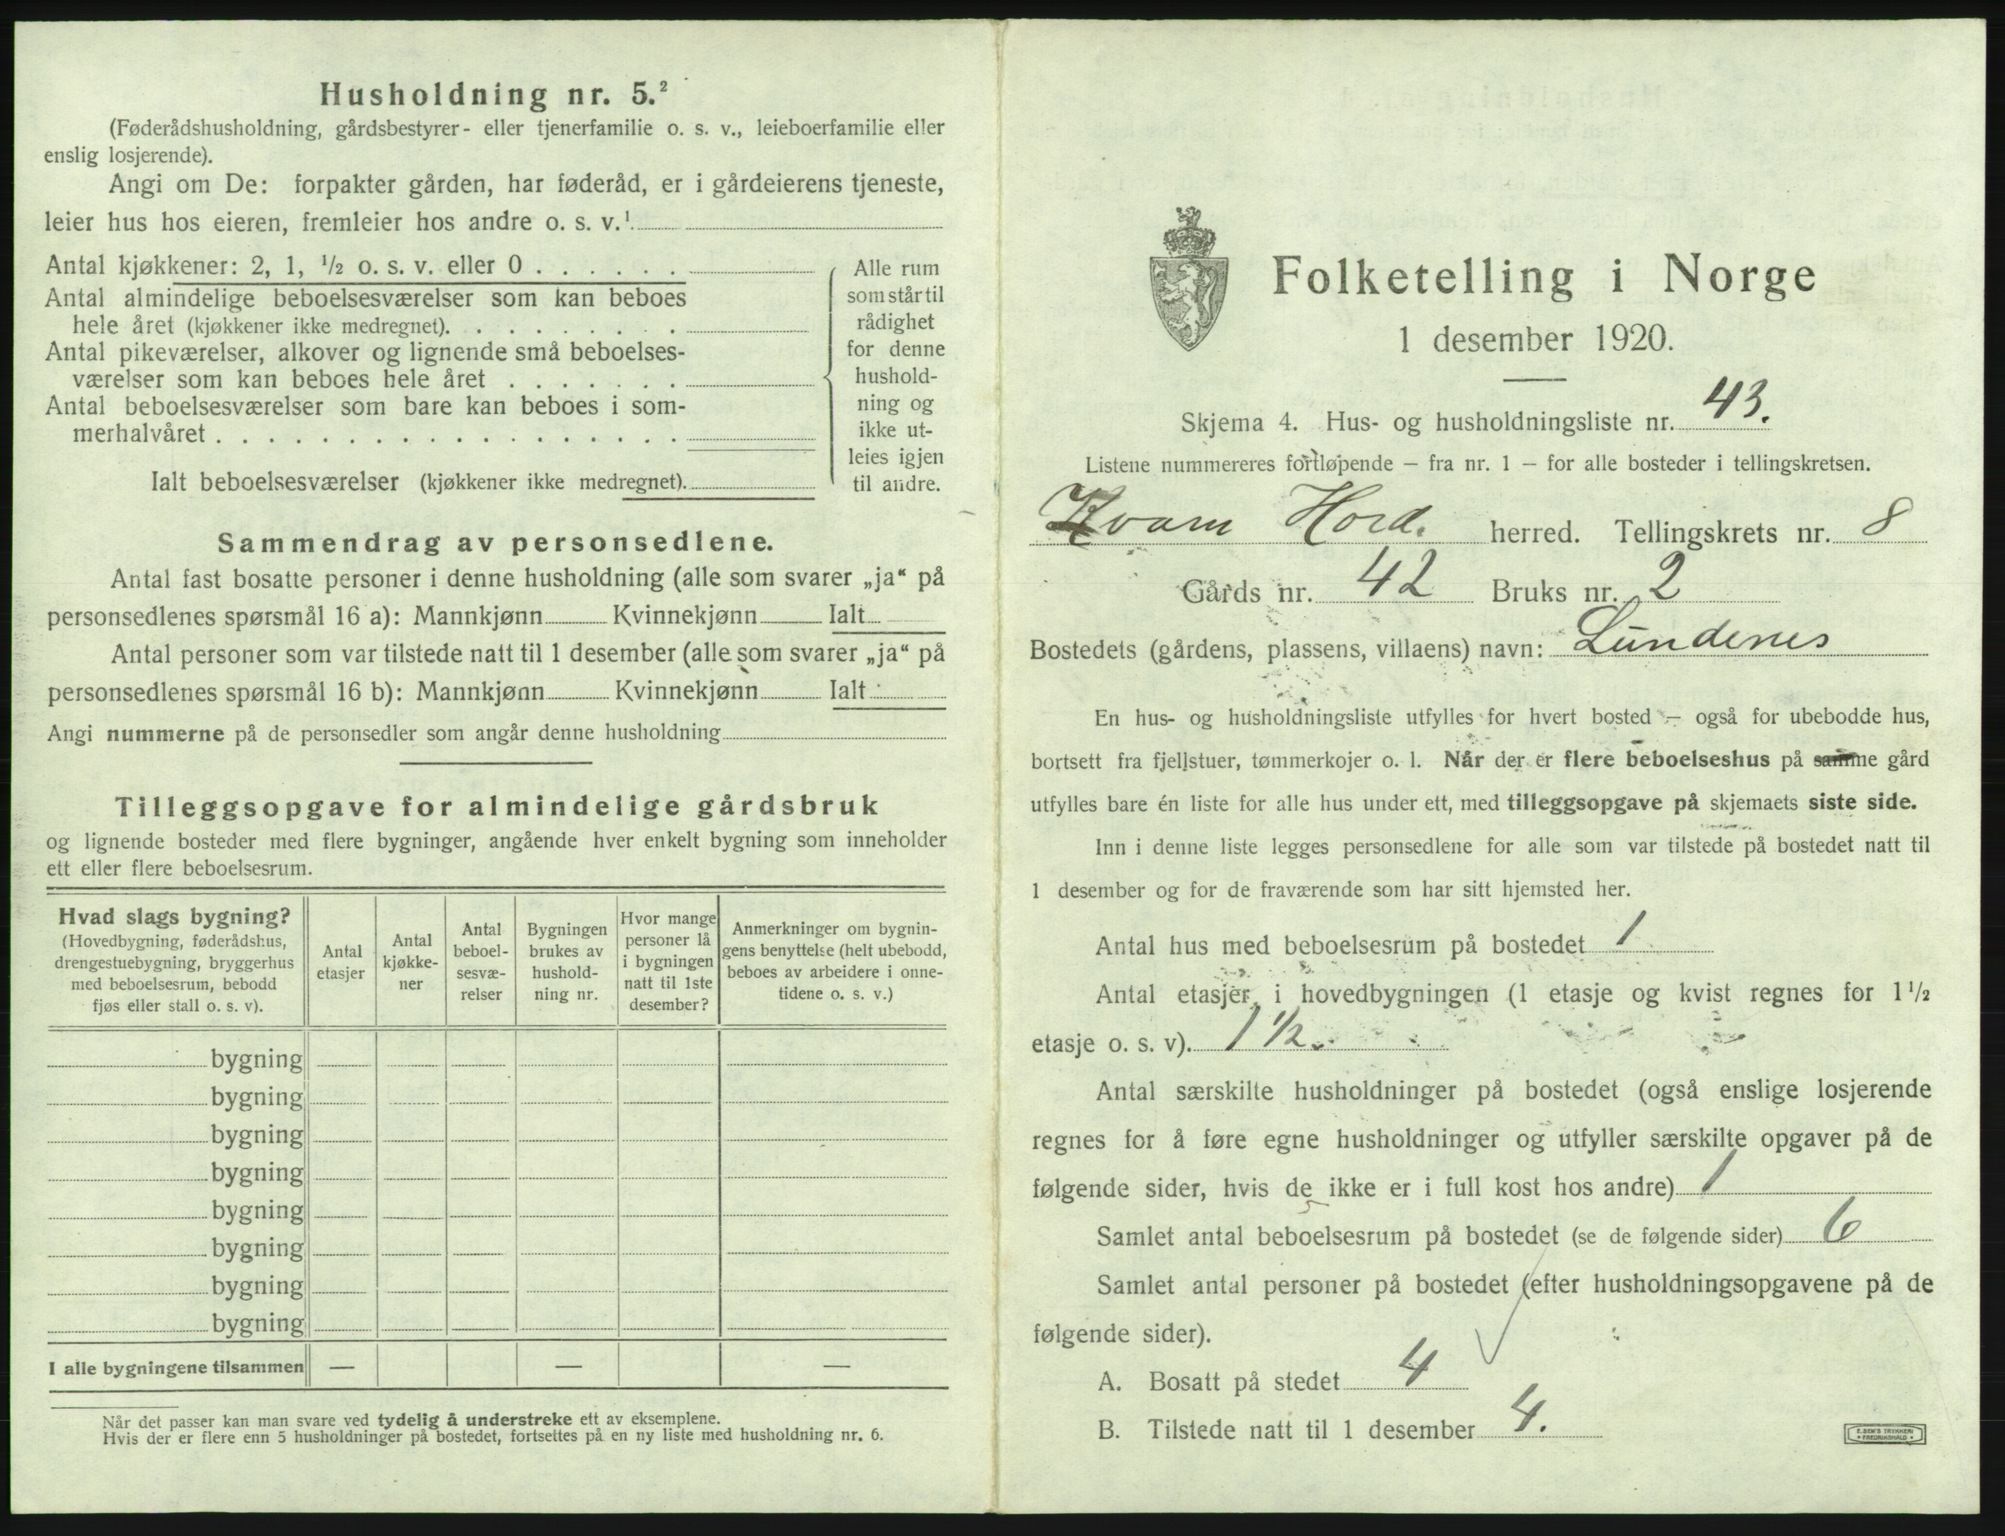 Husholdning nr. 5.²
(Føderådshusholdning, gårdsbestyrer- eller tjenerfamilie o. s. v., leieboerfamilie eller
enslig losjerende).
Angi om De: forpakter gården, har føderåd, er i gårdeierens tjeneste,
leier hus hos eieren, fremleier hos andre o. s. v.¹
Antal kjøkkener: 2, 1, ½ o. s. v. eller 0 . . . . . .
Antal almindelige beboelsesværelser som kan beboes
hele året (kjøkkener ikke medregnet). . . . . . . . .
Antal pikeværelser, alkover og lignende små beboelses-
værelser som kan beboes hele året . . . . . . .
Antal beboelsesværelser som bare kan beboes i som-
merhalvåret . . . . . . . . . . . . . . . . . .
Ialt beboelsesværelser (kjøkkener ikke medregnet).
Alle rum
som står til
rådighet
for denne
hushold-
ning og
ikke ut-
leies igjen
til andre.
Sammendrag av personsedlene.
Antal fast bosatte personer i denne husholdning (alle som svarer „ja“ på
personsedlenes spørsmål 16 a): Mannkjønn Kvinnekjønn Ialt
Antal personer som var tilstede natt til 1 desember (alle som svarer „ja“ på
personsedlenes spørsmål 16 b): Mannkjønn Kvinnekjønn Ialt
Angi nummerne på de personsedler som angår denne husholdning
Tilleggsopgave for almindelige gårdsbruk
og lignende bosteder med flere bygninger, angående hver enkelt bygning som inneholder
ett eller flere beboelsesrum.
Hvad slags bygning?
(Hovedbygning, føderådshus,
drengestuebygning, bryggerhus
med beboelsesrum, bebodd
fjøs eller stall o. s. v).
Antal
etasjer
Antal
kjøkke-
ner
Antal
beboel-
sesvæ-
relser
Bygningen
brukes av
hushold-
ning nr.
Hvor mange
personer lå
i bygningen
natt til 1ste
desember?
Anmerkninger om bygnin-
gens benyttelse (helt ubebodd,
beboes av arbeidere i onne-
tidene o. s. v.)
bygning
bygning
bygning
bygning
bygning
bygning
bygning
bygning
I alle bygningene tilsammen — — —
Når det passer kan man svare ved tydelig å understreke ett av eksemplene.
Hvis der er flere enn 5 husholdninger på bostedet, fortsettes på en ny liste med husholdning nr. 6.
Folketelling i Norge
1 desember 1920.
Skjema 4. Hus- og husholdningsliste nr. 43.
Listene nummereres fortløpende – fra nr. 1 – for alle bosteder i tellingskretsen.
Kvam Hord. herred. Tellingskrets nr. 8
Gårds nr. 42 Bruks nr. 2
Bostedets (gårdens, plassens, villaens) navn: Lundenes
En hus- og husholdningsliste utfylles for hvert bosted – også for ubebodde hus,
bortsett fra fjellstuer, tømmerkojer o. l. Når der er flere beboelseshus på samme gård
utfylles bare én liste for alle hus under ett, med tilleggsopgave på skjemaets siste side.
Inn i denne liste legges personsedlene for alle som var tilstede på bostedet natt til
1 desember og for de fraværende som har sitt hjemsted her.
Antal hus med beboelsesrum på bostedet 1
Antal etasjer i hovedbygningen (1 etasje og kvist regnes for 1½
etasje o. s. v). 1 ½.
Antal særskilte husholdninger på bostedet (også enslige losjerende
regnes for å føre egne husholdninger og utfyller særskilte opgaver på de
følgende sider, hvis de ikke er i full kost hos andre) 1
Samlet antal beboelsesrum på bostedet (se de følgende sider) 6
Samlet antal personer på bostedet (efter husholdningsopgavene på de
følgende sider).
A. Bosatt på stedet 4
B. Tilstede natt til 1 desember 4.